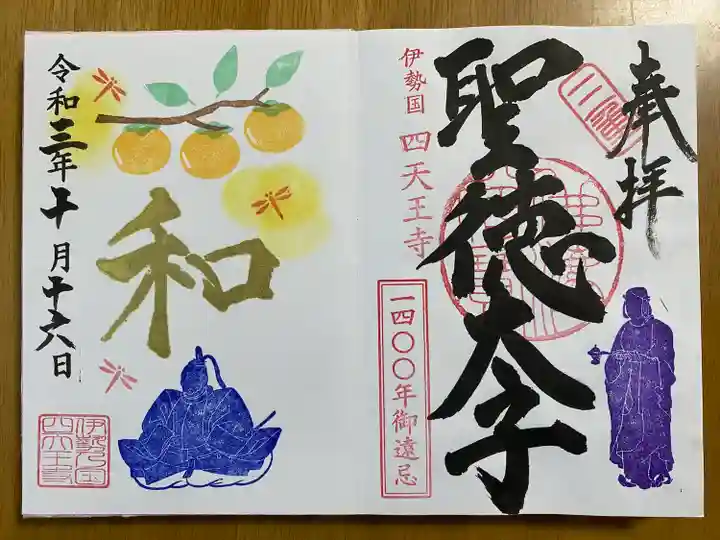 奉拝
聖徳太子
伊勢国 四天王寺
一四〇〇年御遠忌
和
令和三年十月十六日
伊勢乃国
四天王寺